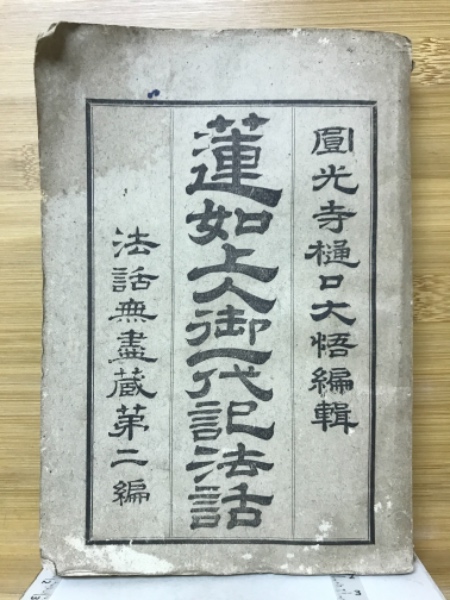 圓光寺樋口大悟編輯
蓮如上人御一代記法話
法話無盡蔵第二編